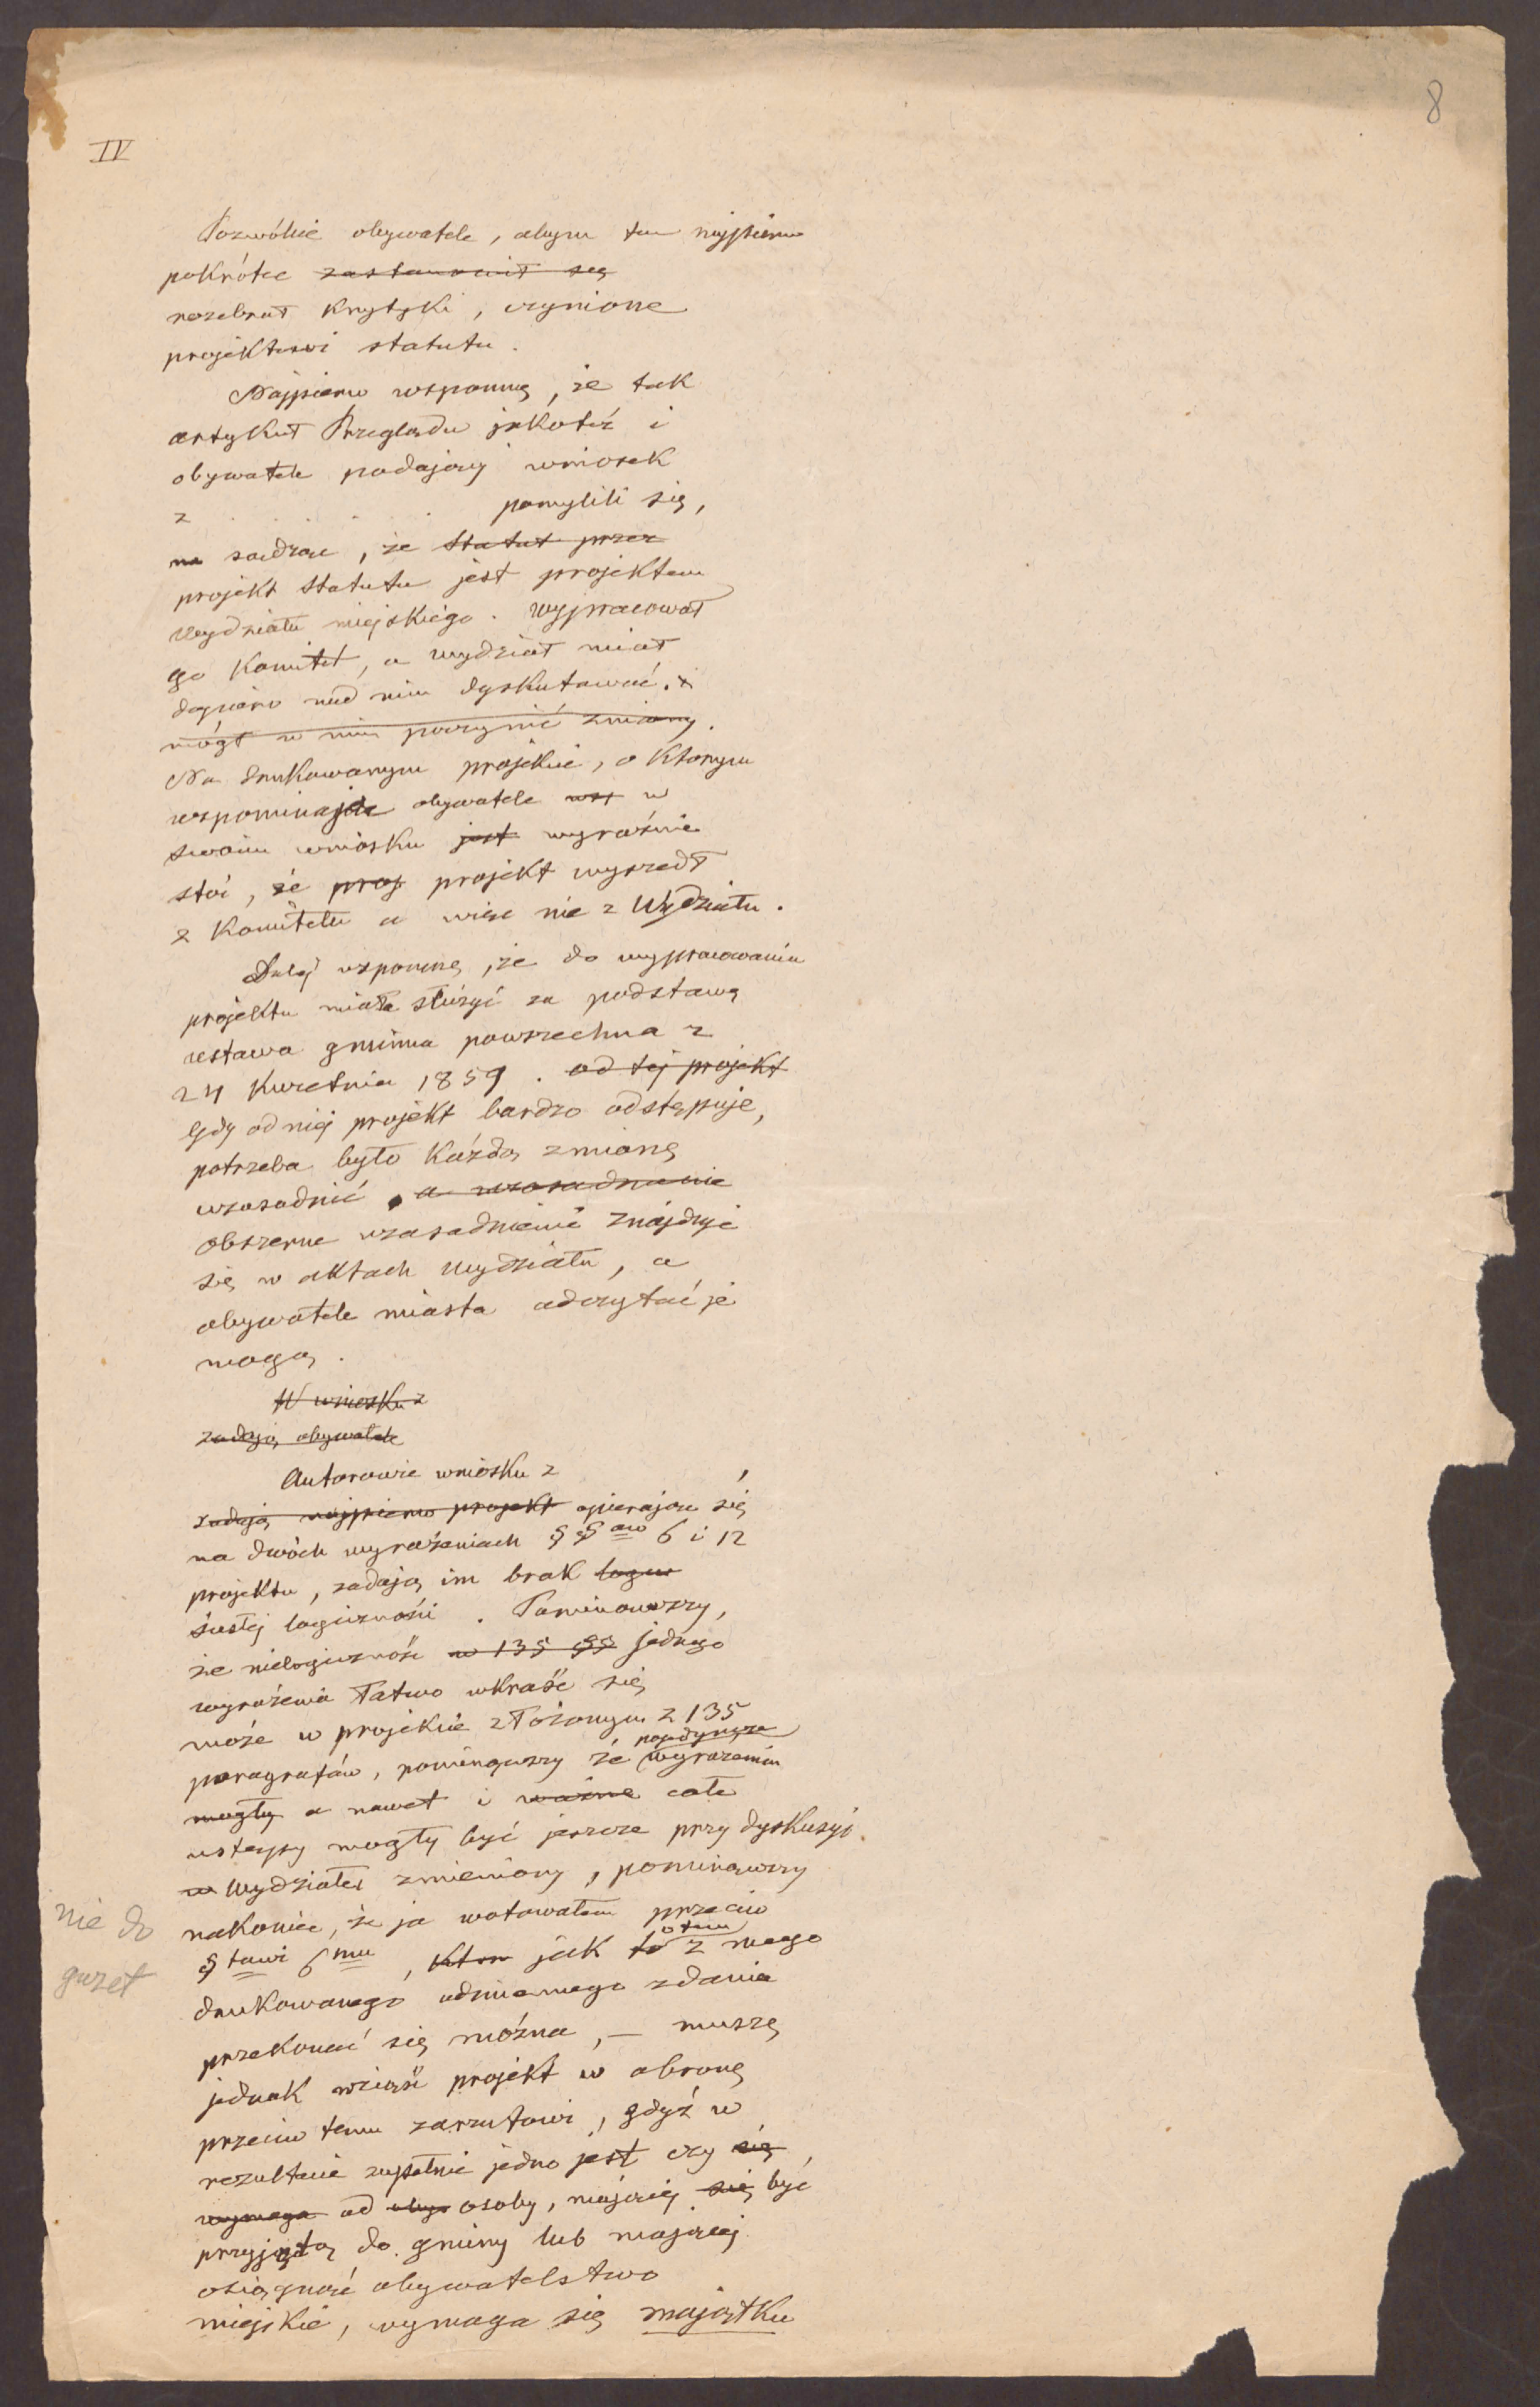 8
IV
Pozwólcie obywatele, abym tu najpierw
pokrótce zastanowił się
rozebrał krytyki, czynione
projektowi statutu.
Najpierw wspomnę, że tak
artykuł Przeglądu jakoteż i
obywatele podający wniosek
z . . . . . . pomylili się,
na sądząc, że statut przez
projekt statutu jest projektem
wydziału miejskiego. Wypracował
go Komitet, a wydział miał
dopiero nad nim dyskutować. i
mógł w nim poczynić zmiany.
Na drukowanym projekcie, o którym
wspominają obywatele w
swoim wniosku jest wyraźnie
stoi, że proj projekt wyszedł
z Komitetu a więc nie z Wydziału.
Dalej wspomnę, że do wypracowania
projektu miała służyć za podstawę
ustawa gminna powszechna z
24 Kwietnia 1859. od tej projekt
Gdy od niej projekt bardzo odstępuje,
potrzeba było każdą zmianę
uzasadnić, a uzasadnienie
obszerne uzasadnienie znajduje
się w aktach wydziału, a
obywatele miasta odczytać je
mogą.
W wniosku z
zadają obywatele
Autorowie wniosku z ,
zadają najpierw projekt opierając się
na dwóch wyrażeniach §§ów 6 i 12
projektu, zadają im brak
ścisłej logiczności. Pominąwszy,
że nielogiczność w 135 §§ jednego
wyrażenia łatwo wkraść się
może w projekcie złożonym z 135
paragrafów, pominąwszy że pojedyncze wyrażenia
mogły a nawet i ważne całe
ustępy mogły być jeszcze przy dyskusyi
w Wydziale zmieniony, pominąwszy
nakoniec, że ja wotowałem przeciw
§towi 6mu, jak to o tem z mego
drukowanego odmiennego zdania
przekonać się można, — muszę
jednak wziąść projekt w obronę
przeciw temu zarzutowi, gdyż w
rezultacie zupełnie jedno jest czy się
wymaga od osoby, mającej się być
przyjętą do gminy lub mającej
osiągnąć obywatelstwo
miejskie, wymaga się majątku
nie do
gazet